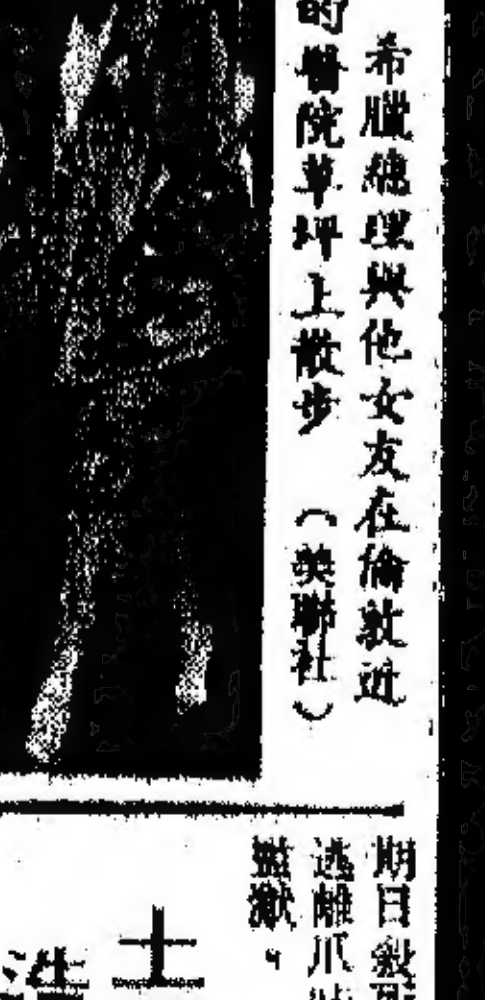 希臘總理與他女友在倫敦近
的醫院草坪上散步　（美聯社）
期日
逃離爪
監獄。
士